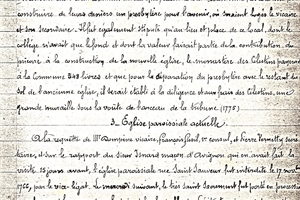 construire de leurs deniers un presbytère pour l'avenir, où seraient logés le vicaire
et son secondaire. Il fut également stipulé qu'au lieu et place de ce local, dont le
collège n'avait que le fond et dont la valeur faisait partie de la contribution du
prieur à la construction de la nouvelle église, le monastère des Célestins payerait
à la Commune 343 livres et que pour la séparation du presbytère avec le restant du
sol de l'ancienne église, il serait établi à la diligence et aux frais des Célestins, une
grande muraille sous la voûte de l'arceau de la tribune. (1778)
3_ Église paroissiale actuelle
A la requête de Mr vicaire, François 1er consul, et Pierre
taire, et sur le rapport du sieur Isnard maçon d'Avignon qui en avait fait la
visite 15 jours avant, l'église paroissiale rue Saint Sauveur fut interdite le 17 avril
1766, par le vice-légat. Le mercredi suivant, le très Saint Sacrement fut porté en process